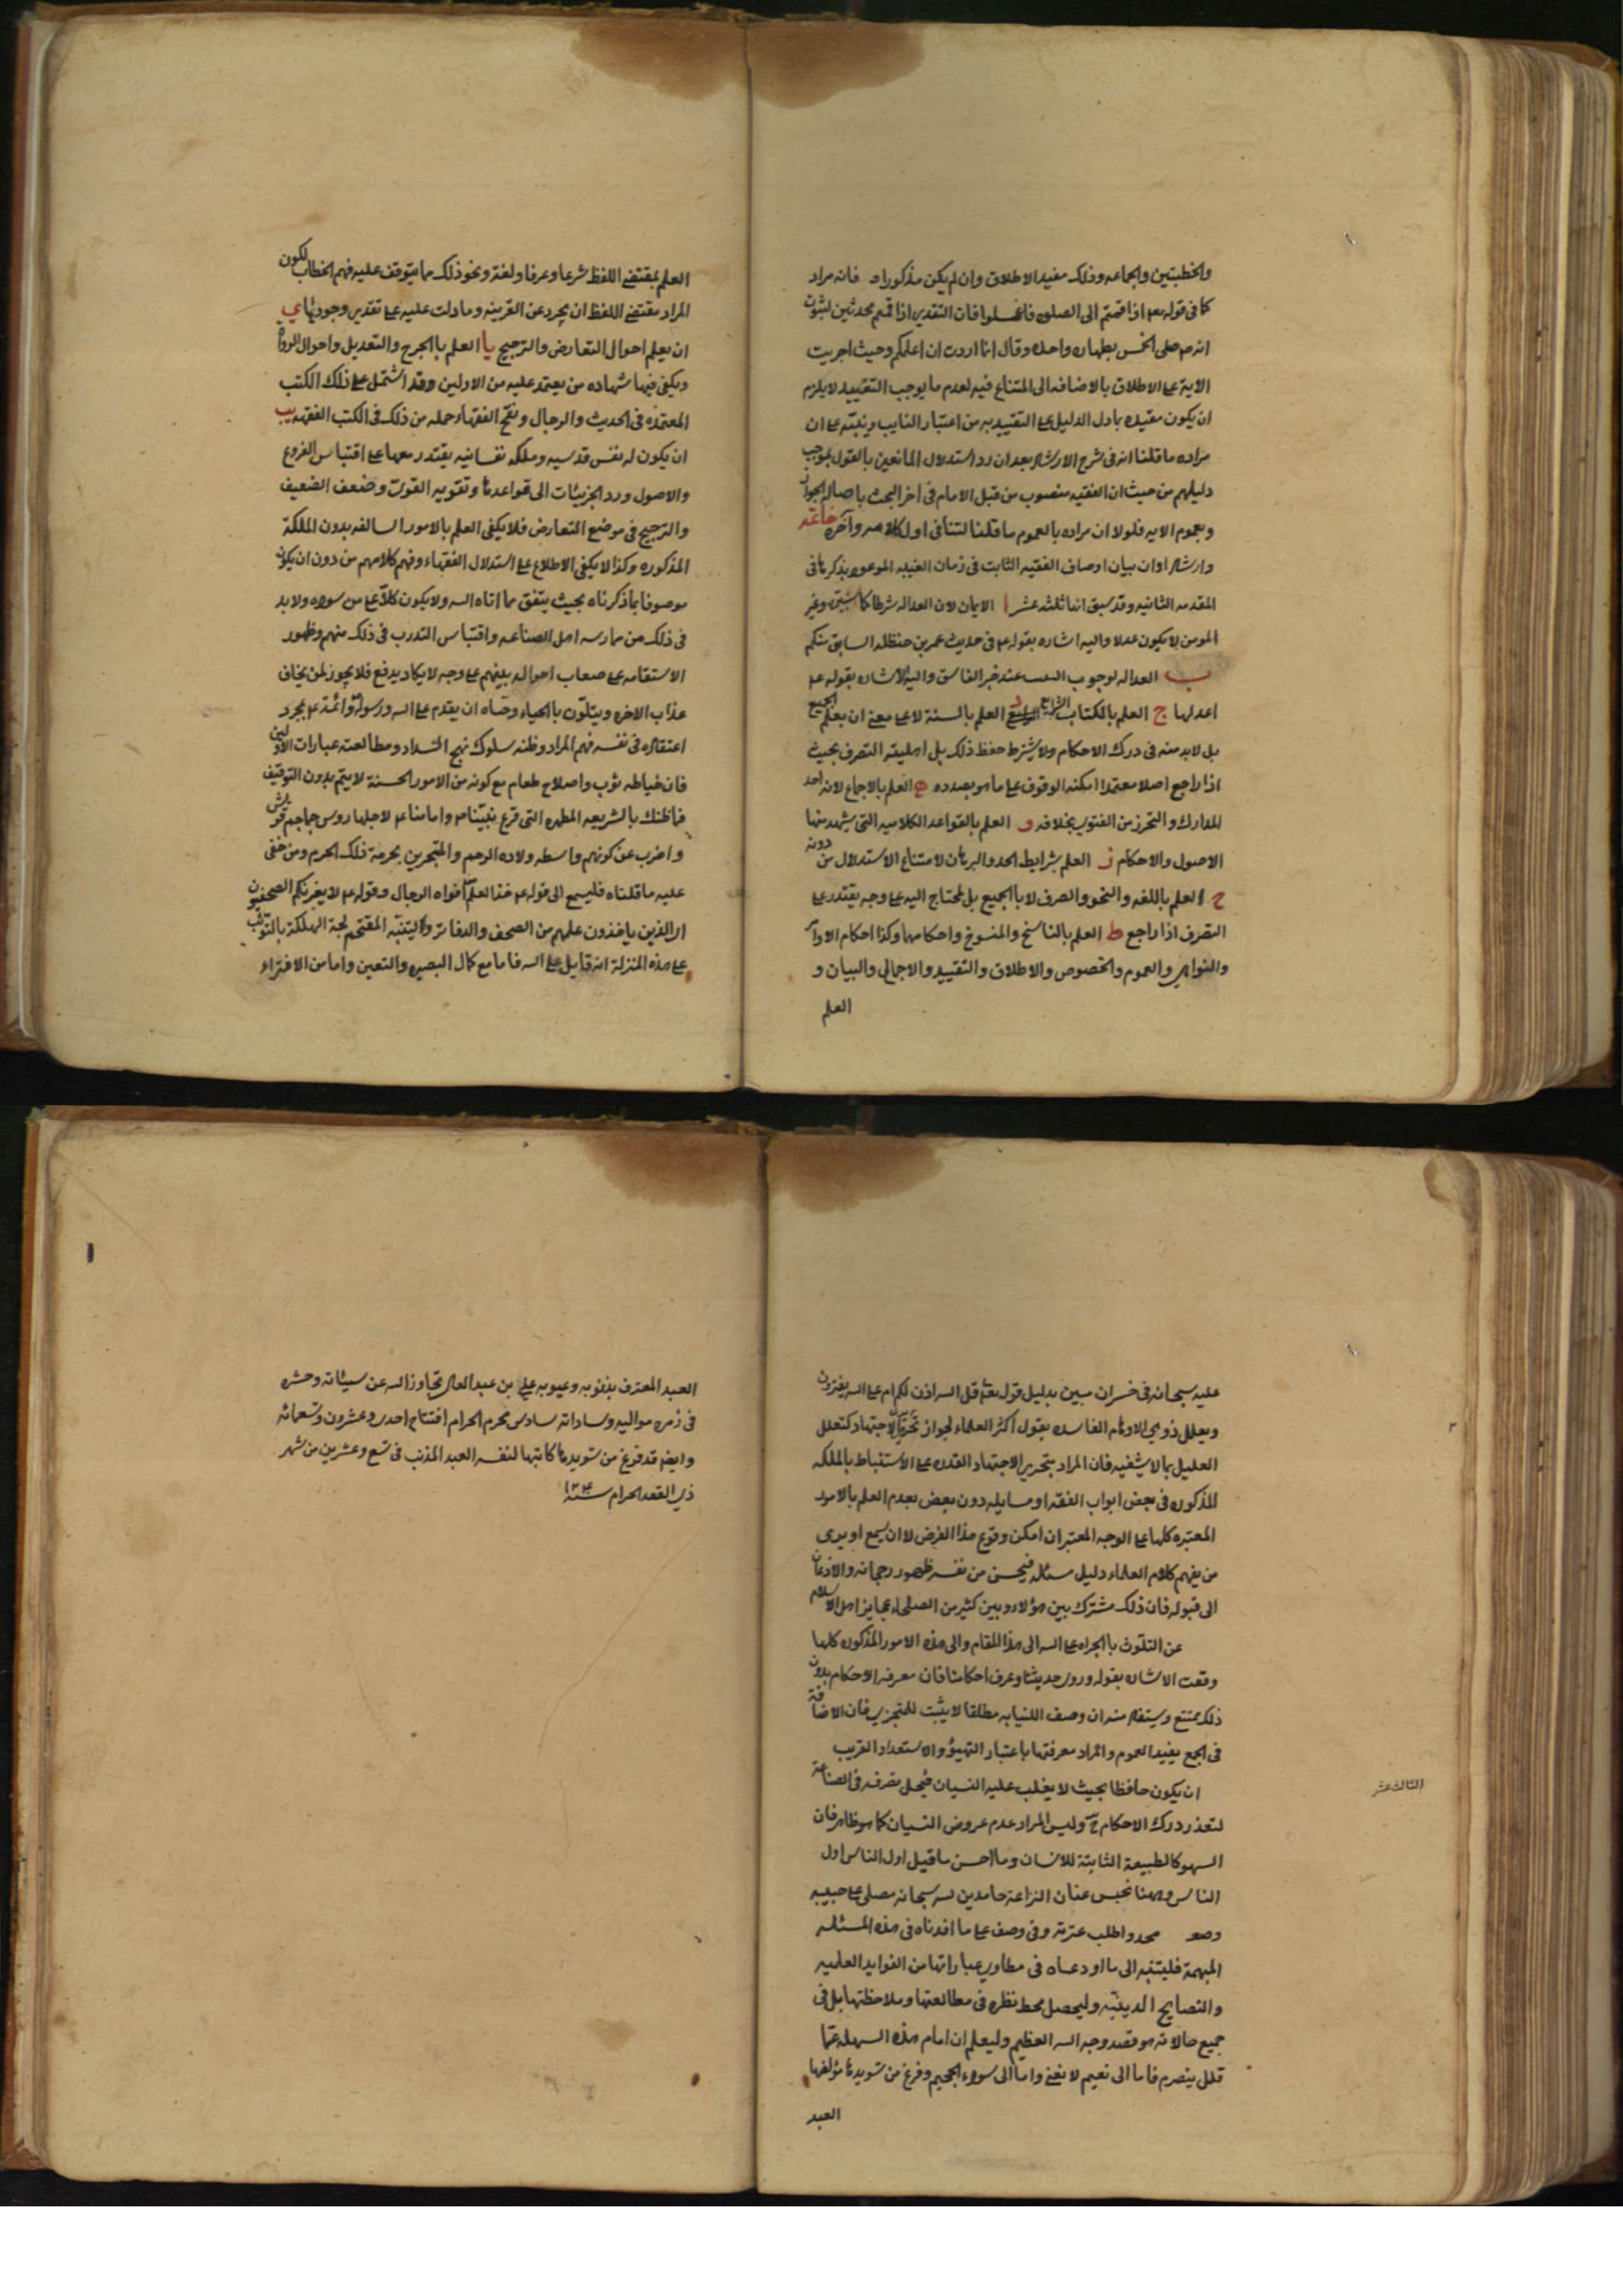 والخطبتين والجماعه وذلك مفيد الاطلاق وان لم يكن مذكورا فانه مراد
كما في قوله تعم اذا قمتم الى الصلوه فاغسلوا فان التقدير اذا قمتم محدثين لثبوت
انه ص صلى الخمس بطهاره واحده وقال انما اردت ان اعلمكم وحيث اجريت
الآية على الاطلاق بالاضافه الى المتنازع فيه لعدم ما يوجب التقييد لا يلزم
ان يكون مقيده بما دل الدليل على التقييد به من اعتبار النايب وينبه على ان
مراده ما قلنا انه في شرح الارشاد بعد ان رد استدلال المانعين بالقول بموجب
دليلهم من حيث ان الفقيه منصوب من قبل الامام في اخر البحث باصاله الجواز
وبعموم الايه فلولا ان مراده بالعموم ما قلنا لتنافى اول كلامه وآخره خاتمه
وارشاد اوان بيان اوصاف الفقيه الثابت في زمان الغيبه الموعود بذكرها في
المقدمه الثانيه وقد سبق انها ثلثه عشر ا الايمان لان العداله شرط كما ستبين وغير
المومن لا يكون عدلا واليه اشاره بقوله ع في حديث عمر بن حنظله السابق منكم
ب العداله لوجوب عند خبر الفاسق واليه الاشاره بقوله ع
اعدلهما ج العلم بالكتاب الرابع العلم بالسنة لا على معنى ان يعلم الجميع
بل لابد منه في درك الاحكام ولا يشترط حفظ ذلك بل اهلية التصرف بحيث
اذا راجع اصلا معتمدا امكنه الوقوف على ما هو بصدده ه العلم بالاجماع لانه احد
المدارك والتحرز من الفتوى بخلافه و العلم بالقواعد الكلاميه التي يستمد منها
الاصول والاحكام ز العلم بشرايط الحد والبرهان لامتناع الاستدلال من دونه
ح العلم باللغه والنحو والصرف لا بالجميع بل المحتاج اليه على وجه يقتدر على
التصرف اذا راجع ط العلم بالناسخ والمنسوخ واحكامها وكذا احكام الاوامر
والنواهي والعموم والخصوص والاطلاق والتقييد والاجمال والبيان و
العلم
العلم بمقتضى اللفظ شرعا وعرفا ولغة ونحو ذلك مما يتوقف عليه فهم الخطاب لكون
المراد مقتضى اللفظ ان يجرد عن القرينه وما دلت عليه على تقدير وجودها ي
ان يعلم احوال التعارض والترجيح يا العلم بالجرح والتعديل واحوال الرواة
ويكفي فيها شهاده من يعتمد عليه من الاولين وقد اشتمل على ذلك الكتب
المعتمده في الحديث والرجال ونقح الفقهاء جمله من ذلك في الكتب الفقهيه يب
ان يكون له نفس قدسيه وملكه نفسانيه يقتدر معها على اقتباس الفروع
والاصول ورد الجزئيات الى قواعدها وتقويه القوى وضعف الضعيف
والترجيح في موضع التعارض فلا يكفى العلم بالامور السالفه بدون الملكة
المذكوره وكذا لا يكفى الاطلاع على استدلال الفقهاء وفهم كلامهم من دون ان يكون
موصوفا بما ذكرناه بحيث ينفق مما اتاه الله ولا يكون كلاّ على من سواه ولا بد
في ذلك من ممارسه اهل الصناعه واقتباس التدرب في ذلك منهم وظهور
الاستقامه على صعاب احواله بينهم على وجه لا يكاد يدفع فلا يجوز لمن يخاف
عذاب الاخره ويتلون بالحياء وحساه ان يقدم على الله ورسوله وائمته ع بمجرد
اعتقاده في نفسه فهم المراد وظنه سلوك نهج السداد ومطالعته عبارات الاولين
فان خياطه ثوب واصلاح طعام مع كونه من الامور الحسنة لا يتم بدون التوقيف
فما ظنك بالشريعه المطهره التي قرع نبيّنا ص وامامنا ع لاجلها روس جماجم قريش
واضرب عن كونهم واسطه ولاده الرحم والمتجرين بحرمة ذلك الحرم ومن خفى
عليه ما قلناه فليسمع الى قوله ع خذ العلم افواه الرجال وقوله ع لا يغرنكم الصحفيون
ار الذين ياخذون علمهم من الصحف والدفاتر وليتنبّه المقتحم لجة الهلكة بالتوثب
على هذه المنزلة انه قايل على الله فاما مع كمال البصيره والتعين واما من الافتراء
عليه سبحانه في خسران مبين بدليل قوله تعم قل الله اذن لكم ام على الله تفترون
وتعلل ذوي الاوهام الفاسده بقول اكثر العلماء لجواز تجزي الاجتهاد كتعلل
العليل بما لا يشفيه فان المراد بتجزي الاجتهاد القدره على الاستنباط بالملكه
المذكوره في بعض ابواب الفقه او مسايله دون بعض بعدم العلم بالامور
المعتبره كلها على الوجه المعتبر ان امكن وقوع هذا الفرض لا ان يسمع او يرى
من يفهم كلام العلماء دليل مسئله فيحسن من نفسه ظهور رجحانه والاذعان
الى قبوله فان ذلك مشترك بين هؤلاء وبين كثير من الصلحاء عجايز اهل الاسلام
عن التلوث بالجراه على الله الى هذا المقام والى هذه الامور المذكوره كلها
وقعت الاشاره بقوله وروى حديثنا وعرف احكامنا فان معرفه الاحكام بدون
ذلك ممتنع ويستفاد منه ان وصف النيابه مطلقا لا يثبت للمتجزي فان الاضافة
في الجمع يفيد العموم والمراد معرفتها باعتبار التهيؤ والاستعداد القريب
الثالث عشر
ان يكون حافظا بحيث لا يغلب عليه النسيان فيختل تصرفه في الصناعة
لتعذر درك الاحكام ح وليس المراد عدم عروض النسيان كما هو ظاهر فان
السهو كالطبيعة الثابتة للانسان وما احسن ما قيل اول الناس اول
الناس وههنا نحبس عنان النزاعة حامدين لله سبحانه مصلى على حبيبه
محمد واطلب عترته وفي وصف على ما افدناه في هذه المسئله
المبهمة فليتنبه الى ما اودعناه في مطاوي عباراتها من الفوايد العلميه
والنصايح الدينيّه وليحصل محط نظره في مطالعتها وملاحظتها بل في
جميع حالاته هو قصد وجه الله العظيم وليعلم ان امام هذه السهله عمّا
قلل ينصرم فاما الى نعيم لا يفنى واما الى سواء الجحيم وفرغ من تسويدها مؤلفها
العبد
العبد المعترف بذنوبه وعيوبه علي بن عبد العالي تجاوز الله عن سيئاته وحشره
في زمره مواليه وساداته سادس محرم الحرام افتتاح احدى وعشرون وتسعمائه
وايضا قد فرغ من تسويدها كاتبها لنفسه العبد المذنب في تسع وعشرين من شهر
ذي القعد الحرام سنه